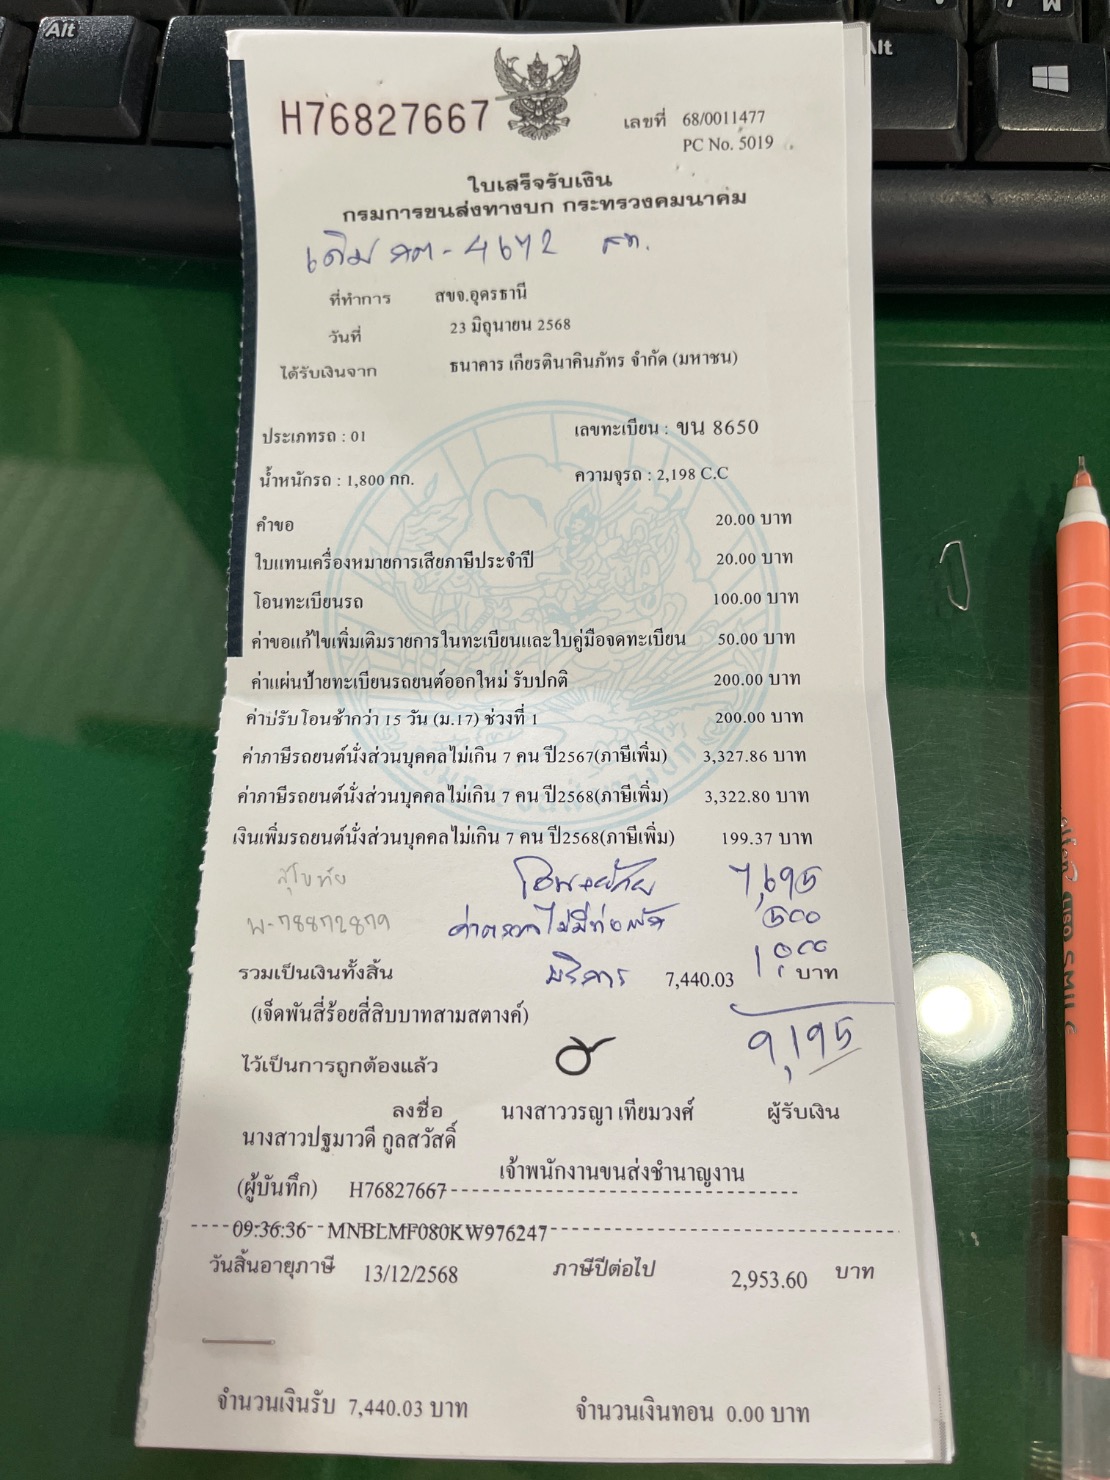 H76827667
เลขที่ 68/0011477
PC No. 5019
ใบเสร็จรับเงิน
กรมการขนส่งทางบก กระทรวงคมนาคม
เดิม - 4672 สท.
ที่ทำการ สขจ.อุดรธานี
วันที่ 23 มิถุนายน 2568
ได้รับเงินจาก ธนาคาร เกียรตินาคินภัทร จำกัด (มหาชน)
ประเภทรถ : 01 เลขทะเบียน : ขน 8650
น้ำหนักรถ : 1,800 กก. ความจุรถ : 2,198 C.C
คำขอ 20.00 บาท
ใบแทนเครื่องหมายการเสียภาษีประจำปี 20.00 บาท
โอนทะเบียนรถ 100.00 บาท
ค่าขอแก้ไขเพิ่มเติมรายการในทะเบียนและใบคู่มือจดทะเบียน 50.00 บาท
ค่าแผ่นป้ายทะเบียนรถยนต์ออกใหม่ รับปกติ 200.00 บาท
ค่าปรับโอนช้ากว่า 15 วัน (ม.17) ช่วงที่ 1 200.00 บาท
ค่าภาษีรถยนต์นั่งส่วนบุคคลไม่เกิน 7 คน ปี2567(ภาษีเพิ่ม) 3,327.86 บาท
ค่าภาษีรถยนต์นั่งส่วนบุคคลไม่เกิน 7 คน ปี2568(ภาษีเพิ่ม) 3,322.80 บาท
เงินเพิ่มรถยนต์นั่งส่วนบุคคลไม่เกิน 7 คน ปี2568(ภาษีเพิ่ม) 199.37 บาท
สุโขทัย โอน+ย้าย 7,695
500
รวมเป็นเงินทั้งสิ้น บริการ 7,440.03 1,000 บาท
(เจ็ดพันสี่ร้อยสี่สิบบาทสามสตางค์)
9,195
ไว้เป็นการถูกต้องแล้ว
ลงชื่อ นางสาววรญา เทียมวงศ์ ผู้รับเงิน
นางสาวปฐมาวดี กูลสวัสดิ์
เจ้าพนักงานขนส่งชำนาญงาน
(ผู้บันทึก) H76827667
09:36:36 MNBLMF080KW976247
วันสิ้นอายุภาษี 13/12/2568 ภาษีปีต่อไป 2,953.60 บาท
จำนวนเงินรับ 7,440.03 บาท จำนวนเงินทอน 0.00 บาท
Alt
Alt